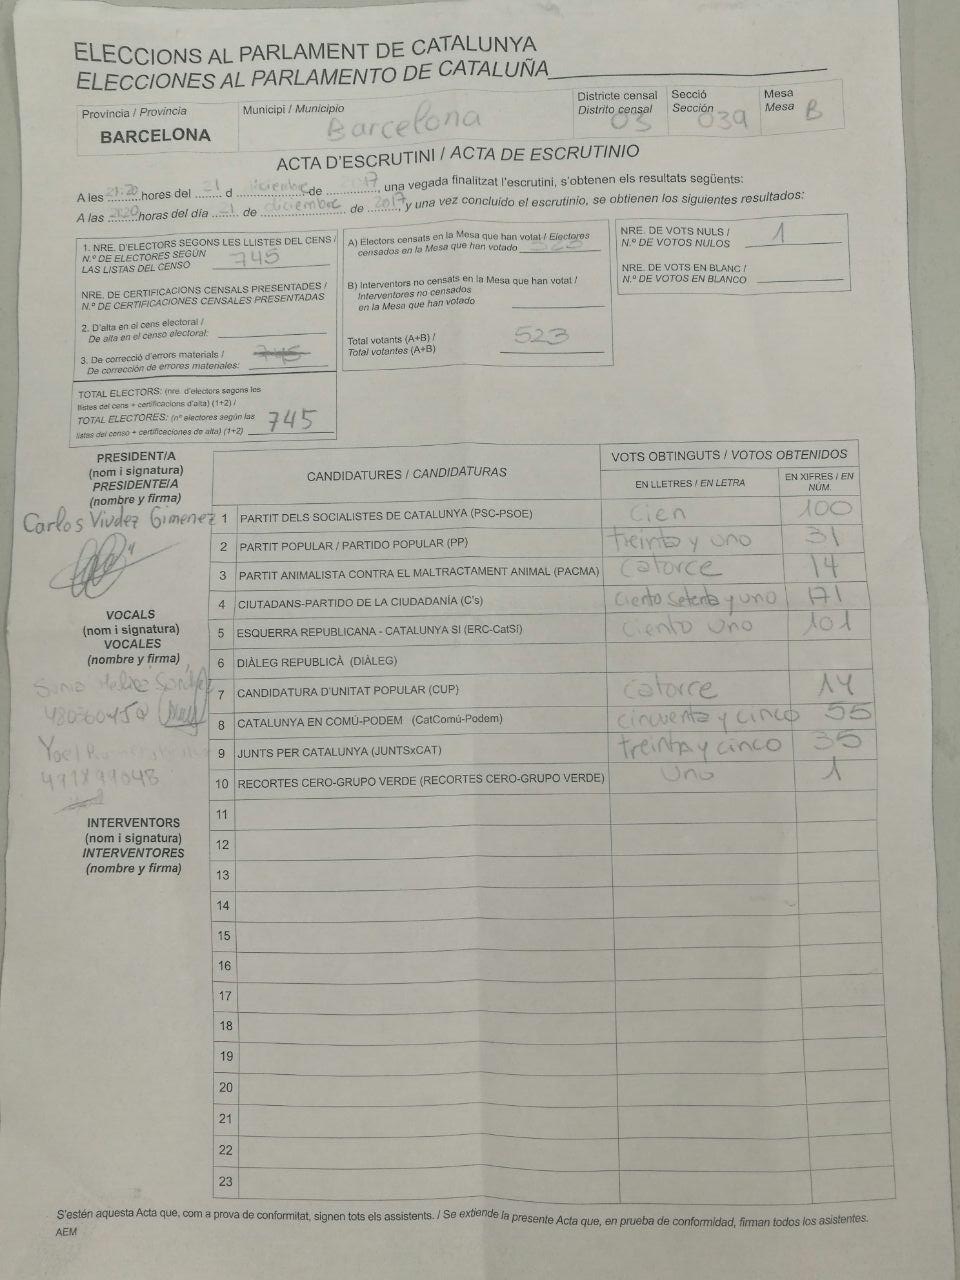 ELECCIONS AL PARLAMENT DE CATALUNYA
ELECCIONES AL PARLAMENTO DE CATALUÑA
Provincia / Provincia
BARCELONA
Municipi / Municipio
Barcelona
Districte censal
Distrito censal
03
Secció
Sección
039
Mesa
Mesa
B
ACTA D'ESCRUTINI / ACTA DE ESCRUTINIO
A les 21:20 hores del 21 d diciembre de 2017, una vegada finalitzat l'escrutini, s'obtenen els resultats següents:
A las horas del día 21 de diciembre de 2017, y una vez concluido el escrutinio, se obtienen los siguientes resultados:
1. NRE. D'ELECTORS SEGONS LES LLISTES DEL CENS /
N.º DE ELECTORES SEGÚN
LAS LISTAS DEL CENSO 745
NRE. DE CERTIFICACIONS CENSALS PRESENTADES /
N.º DE CERTIFICACIONES CENSALES PRESENTADAS
2. D'alta en el cens electoral /
De alta en el censo electoral:
3. De correcció d'errors materials /
De corrección de errores materiales: 745
TOTAL ELECTORS: (nre. d'electors segons les
llistes del cens + certificacions d'alta) (1+2) /
TOTAL ELECTORES: (nº electores según las
listas del censo + certificaciones de alta) (1+2) 745
A) Electors censats en la Mesa que han votat / Electores
censados en la Mesa que han votado 523
B) Interventors no censats en la Mesa que han votat /
Interventores no censados
en la Mesa que han votado
Total votants (A+B) /
Total votantes (A+B) 523
NRE. DE VOTS NULS /
N.º DE VOTOS NULOS 1
NRE. DE VOTS EN BLANC /
N.º DE VOTOS EN BLANCO
PRESIDENT/A
(nom i signatura)
PRESIDENTE/A
(nombre y firma)
Carlos Vivdez Gimenez
VOCALS
(nom i signatura)
VOCALES
(nombre y firma)
Yoel
INTERVENTORS
(nom i signatura)
INTERVENTORES
(nombre y firma)
CANDIDATURES / CANDIDATURAS
VOTS OBTINGUTS / VOTOS OBTENIDOS
EN LLETRES / EN LETRA
EN XIFRES / EN NÚM.
1 PARTIT DELS SOCIALISTES DE CATALUNYA (PSC-PSOE) Cien 100
2 PARTIT POPULAR / PARTIDO POPULAR (PP) treinta y uno 31
3 PARTIT ANIMALISTA CONTRA EL MALTRACTAMENT ANIMAL (PACMA) Catorce 14
4 CIUTADANS-PARTIDO DE LA CIUDADANÍA (C's) ciento setenta y uno 171
5 ESQUERRA REPUBLICANA - CATALUNYA SI (ERC-CatSí) Ciento Uno 101
6 DIÀLEG REPUBLICÀ (DIÀLEG)
7 CANDIDATURA D'UNITAT POPULAR (CUP) Catorce 14
8 CATALUNYA EN COMÚ-PODEM (CatComú-Podem) cincuenta y cinco 55
9 JUNTS PER CATALUNYA (JUNTSxCAT) treinta y cinco 35
10 RECORTES CERO-GRUPO VERDE (RECORTES CERO-GRUPO VERDE) Uno 1
11
12
13
14
15
16
17
18
19
20
21
22
23
S'estén aquesta Acta que, com a prova de conformitat, signen tots els assistents. / Se extiende la presente Acta que, en prueba de conformidad, firman todos los asistentes.
AEM